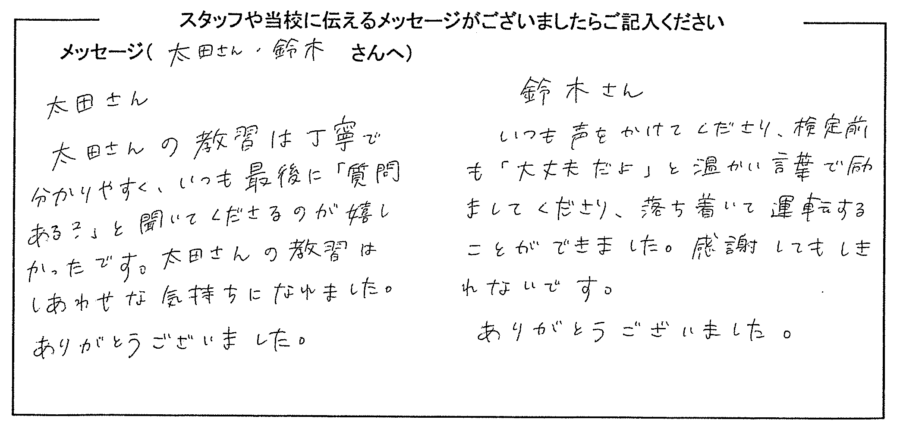 スタッフや当校に伝えるメッセージがございましたらご記入ください
メッセージ( 太田さん・鈴木 さんへ)
太田さん
太田さんの教習は丁寧で
分かりやすく、いつも最後に「質問
ある?」と聞いてくださるのが嬉し
かったです。太田さんの教習は
しあわせな気持ちになれました。
ありがとうございました。
鈴木さん
いつも声をかけてくださり、検定前
も「大丈夫だよ」と温かい言葉で励
ましてくださり、落ち着いて運転する
ことができました。感謝してもしき
れないです。
ありがとうございました。